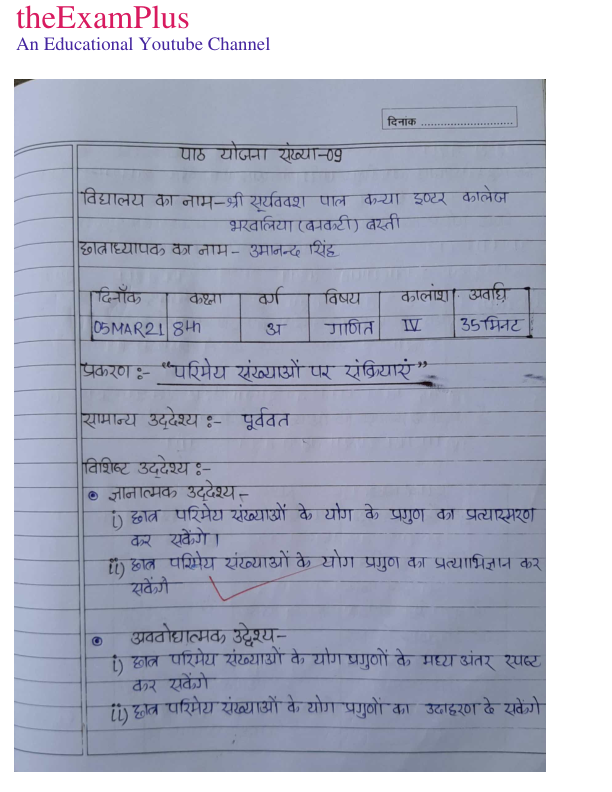 theExamPlus
An Educational Youtube Channel
दिनांक ............................
पाठ योजना संख्या-09
विद्यालय का नाम-श्री सूर्यवंश पाल कन्या इण्टर कालेज
भरवलिया (बनकटी) बस्ती
छात्राध्यापक का नाम- उमानन्द सिंह
दिनाँक कक्षा वर्ग विषय कालांश अवधि
05MAR21 8th अ गणित IV 35मिनट
प्रकरण:- "परिमेय संख्याओं पर संक्रियाएं"
सामान्य उद्देश्य:- पूर्ववत
विशिष्ट उद्देश्य:-
ज्ञानात्मक उद्देश्य-
i) छात्र परिमेय संख्याओं के योग के प्रगुण का प्रत्यास्मरण
कर सकेंगे।
ii) छात्र परिमेय संख्याओं के योग प्रगुण का प्रत्याभिज्ञान कर
सकेंगे
अवबोधात्मक उद्देश्य-
i) छात्र परिमेय संख्याओं के योग प्रगुणों के मध्य अंतर स्पष्ट
कर सकेंगे
ii) छात्र परिमेय संख्याओं के योग प्रगुणों का उदाहरण दे सकेंगे